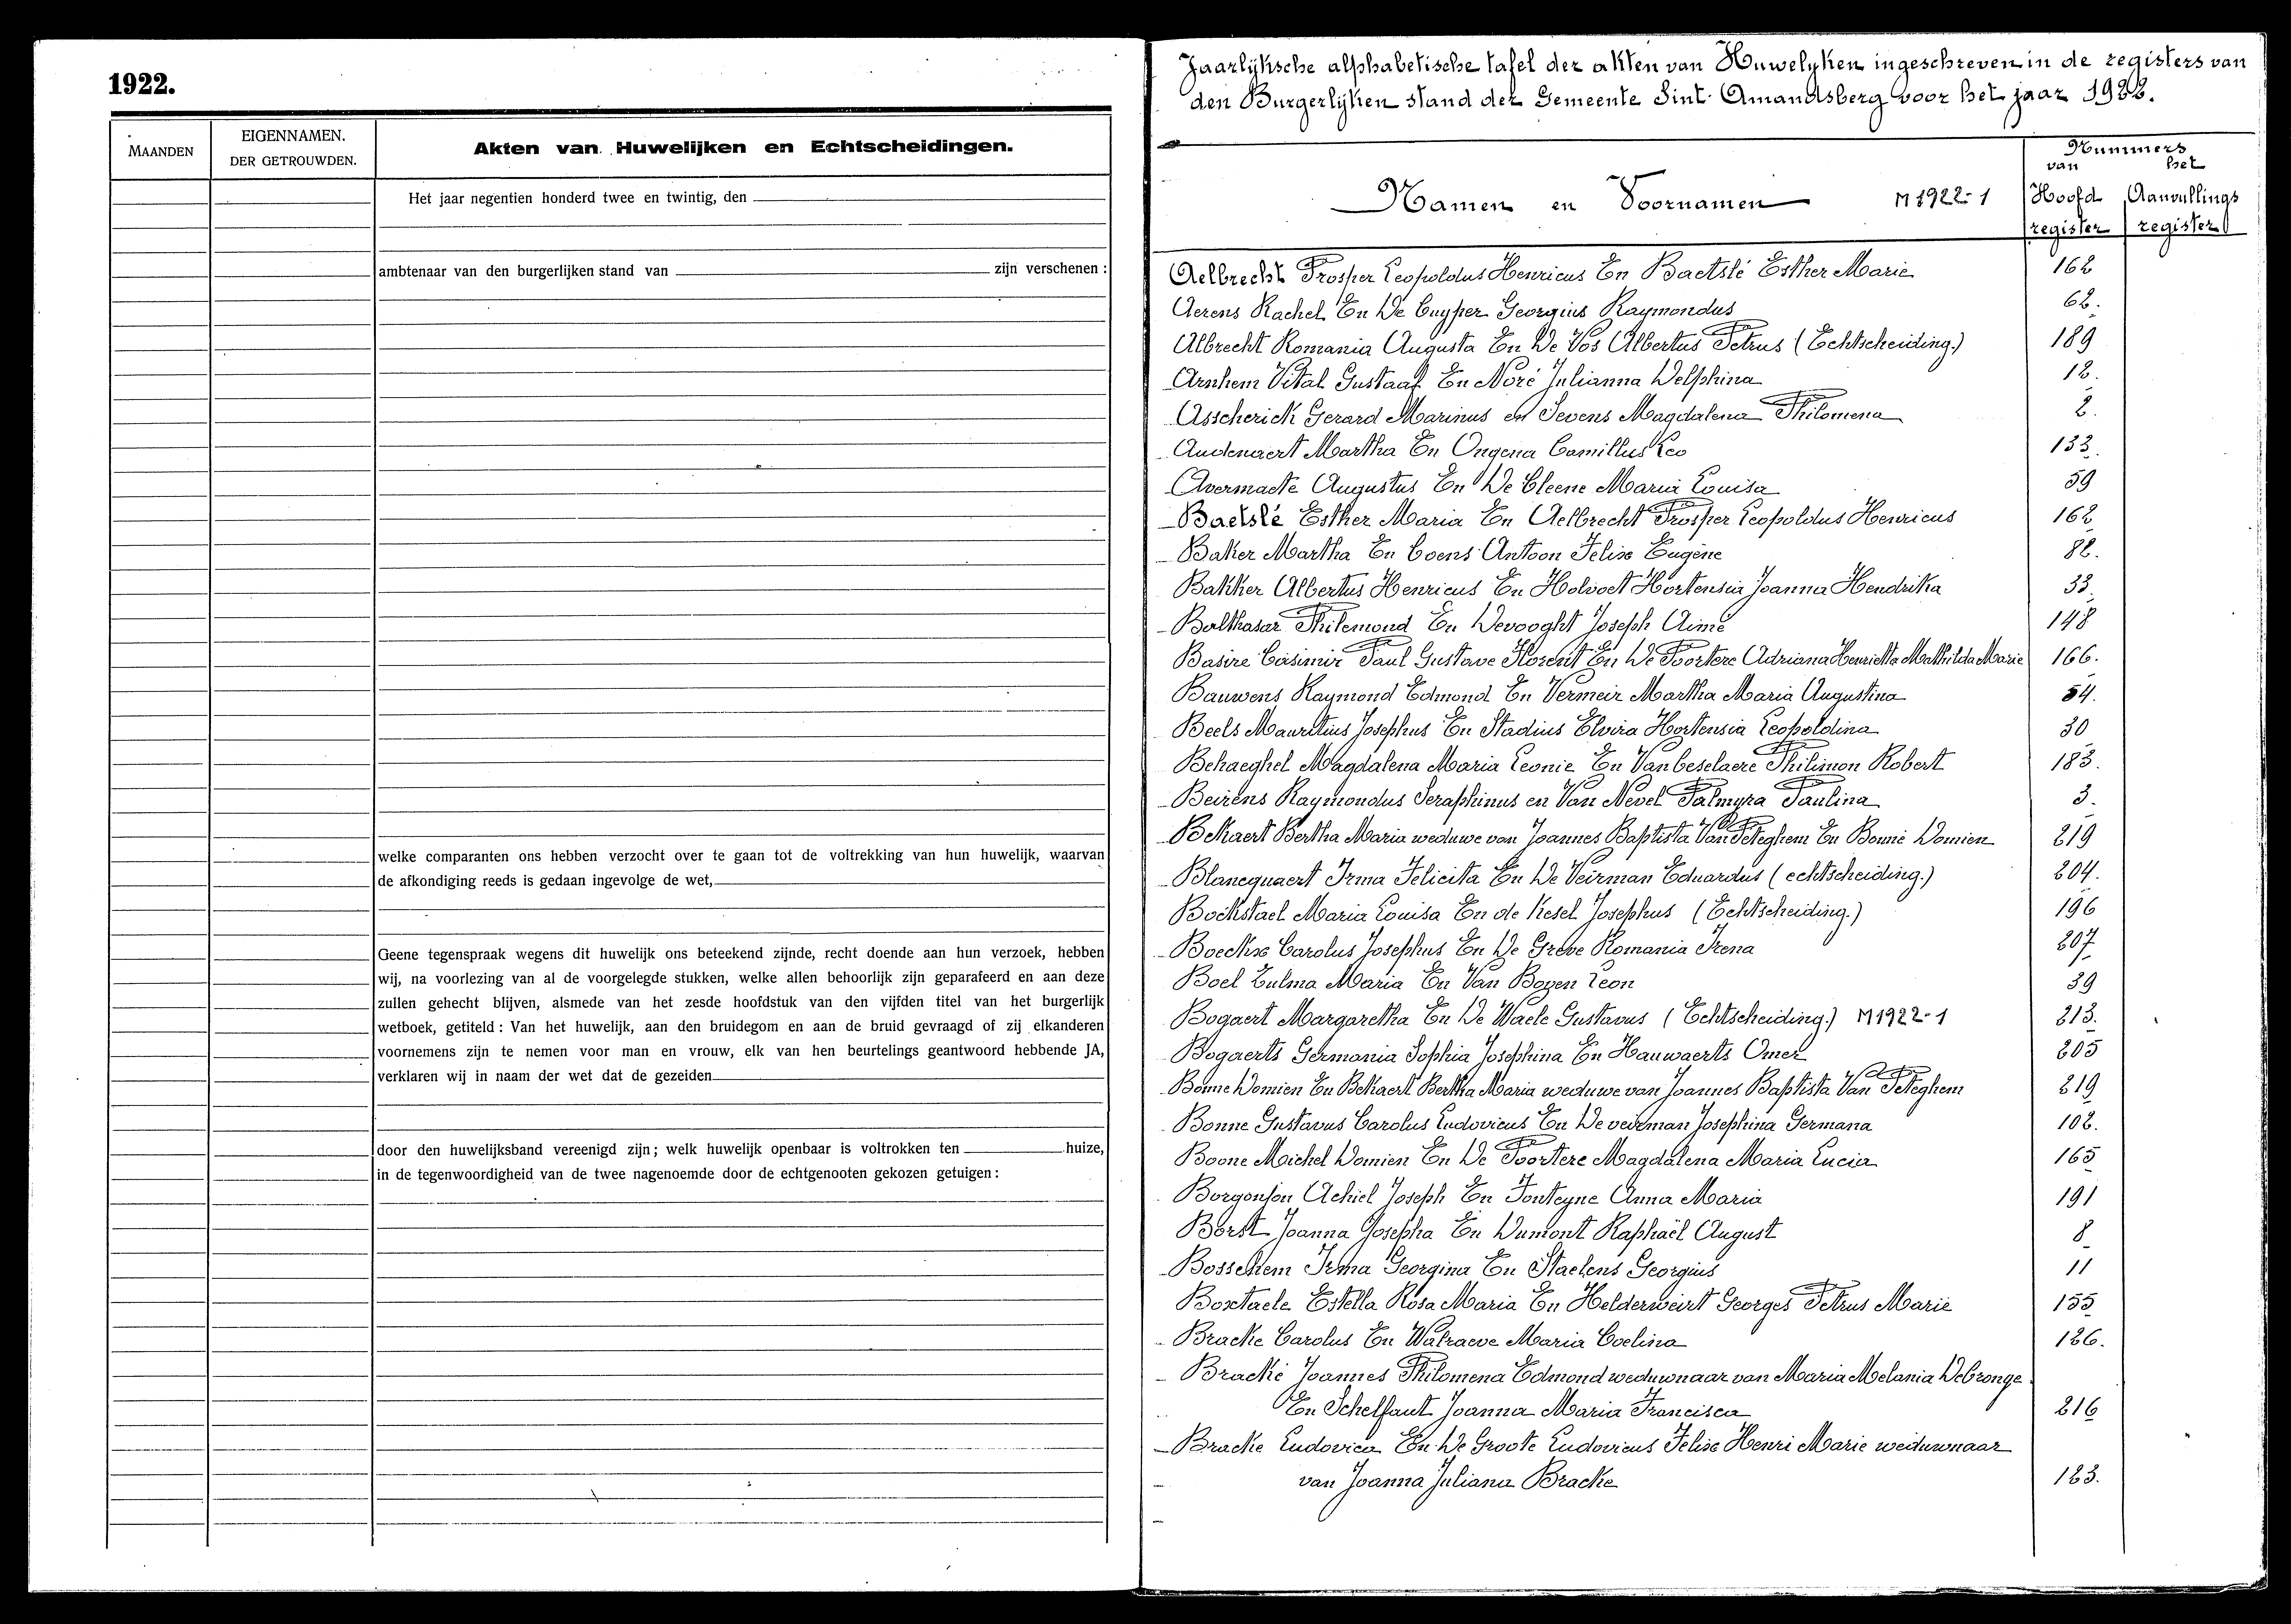 1922.
MAANDEN
EIGENNAMEN.
DER GETROUWDEN.
Akten van Huwelijken en Echtscheidingen.
Het jaar negentien honderd twee en twintig, den
ambtenaar van den burgerlijken stand van zijn verschenen :
welke comparanten ons hebben verzocht over te gaan tot de voltrekking van hun huwelijk, waarvan
de afkondiging reeds is gedaan ingevolge de wet,
Geene tegenspraak wegens dit huwelijk ons beteekend zijnde, recht doende aan hun verzoek, hebben
wij, na voorlezing van al de voorgelegde stukken, welke allen behoorlijk zijn geparafeerd en aan deze
zullen gehecht blijven, alsmede van het zesde hoofdstuk van den vijfden titel van het burgerlijk
wetboek, getiteld : Van het huwelijk, aan den bruidegom en aan de bruid gevraagd of zij elkanderen
voornemens zijn te nemen voor man en vrouw, elk van hen beurtelings geantwoord hebbende JA,
verklaren wij in naam der wet dat de gezeiden
door den huwelijksband vereenigd zijn ; welk huwelijk openbaar is voltrokken ten huize,
in de tegenwoordigheid van de twee nagenoemde door de echtgenooten gekozen getuigen :
Jaarlijksche alphabetische tafel der akten van Huwelyken ingeschreven in de registers van
den Burgerlijken stand der Gemeente Sint-Amandsberg voor het jaar 1922.
Namen en Voornamen M 1922-1
Nummers
van het
Hoofd Aanvullings
register register
Aelbrecht Prosper Leopoldus Henricus En Baetslé Esther Marie 162
Aerens Rachel En De Cuyper Georgius Raymondus 62.
Albrecht Romania Augusta En De Vos Albertus Petrus (Echtscheiding.) 189
Arnhem Vital Gustaaf En Noré Julianna Delphina 12.
Asscherick Gerard Marinus en Sevens Magdalena Philomena 2.
Audenaert Martha En Ongena Camillus Leo 133.
Avermaete Augustus En De Cleene Maria Louisa 59
Baetslé Esther Maria En Aelbrecht Prosper Leopoldus Henricus 162
Baker Martha En Coens Antoon Felix Eugène 82.
Bakker Albertus Henricus En Holvoet Hortensia Joanna Hendrika 33.
Balthasar Philemond En Devooght Joseph Aimé 148
Basire Casimir Paul Gustave Florent En De Poortere Adriana Henrietta Mathilda Marie 166.
Bauwens Raymond Edmond En Vermeir Martha Maria Augustina 54.
Beels Mauritius Josephus En Stadius Elvira Hortensia Leopoldina 30
Behaeghel Magdalena Maria Leonie En Vanbeselaere Philimon Robert 183.
Beirens Raymondus Seraphinus en Van Nevel Palmyra Paulina 3.
Bekaert Bertha Maria weduwe van Joannes Baptista Van Peteghem En Bonne Domien 219
Blancquaert Irma Felicita En De Veirman Eduardus (echtscheiding.) 204.
Bockstael Maria Louisa En de Kesel Josephus (Echtscheiding.) 196
Boeckx Carolus Josephus En De Greve Romania Irena 207
Boel Zulma Maria En Van Boyen Leon 39
Bogaert Margaretha En De Waele Gustavus (Echtscheiding.) M1922-1 213.
Bogaerts Germania Sophia Josephina En Hauwaerts Omer 205
Bonne Domien En Bekaert Bertha Maria weduwe van Joannes Baptista Van Peteghem 219
Bonne Gustavus Carolus Ludovicus En De veirman Josephina Germana 102.
Boone Michel Domien En De Poortere Magdalena Maria Lucia 165
Borgonjon Achiel Joseph En Fonteyne Anna Maria 191
Borst Joanna Josepha En Dumont Raphaël August 8
Bossekem Irma Georgina En Staelens Georgius 11
Boxtaele Estella Rosa Maria En Helderweirt Georges Petrus Marie 155
Bracke Carolus En Walraeve Maria Coelina 126.
Bracke Joannes Philomena Edmond weduwnaar van Maria Melania Debronge
En Schelfaut Joanna Maria Francisca 216
Bracke Ludovica En De Groote Ludovicus Felix Henri Marie weduwnaar
van Joanna Juliana Bracke 123.